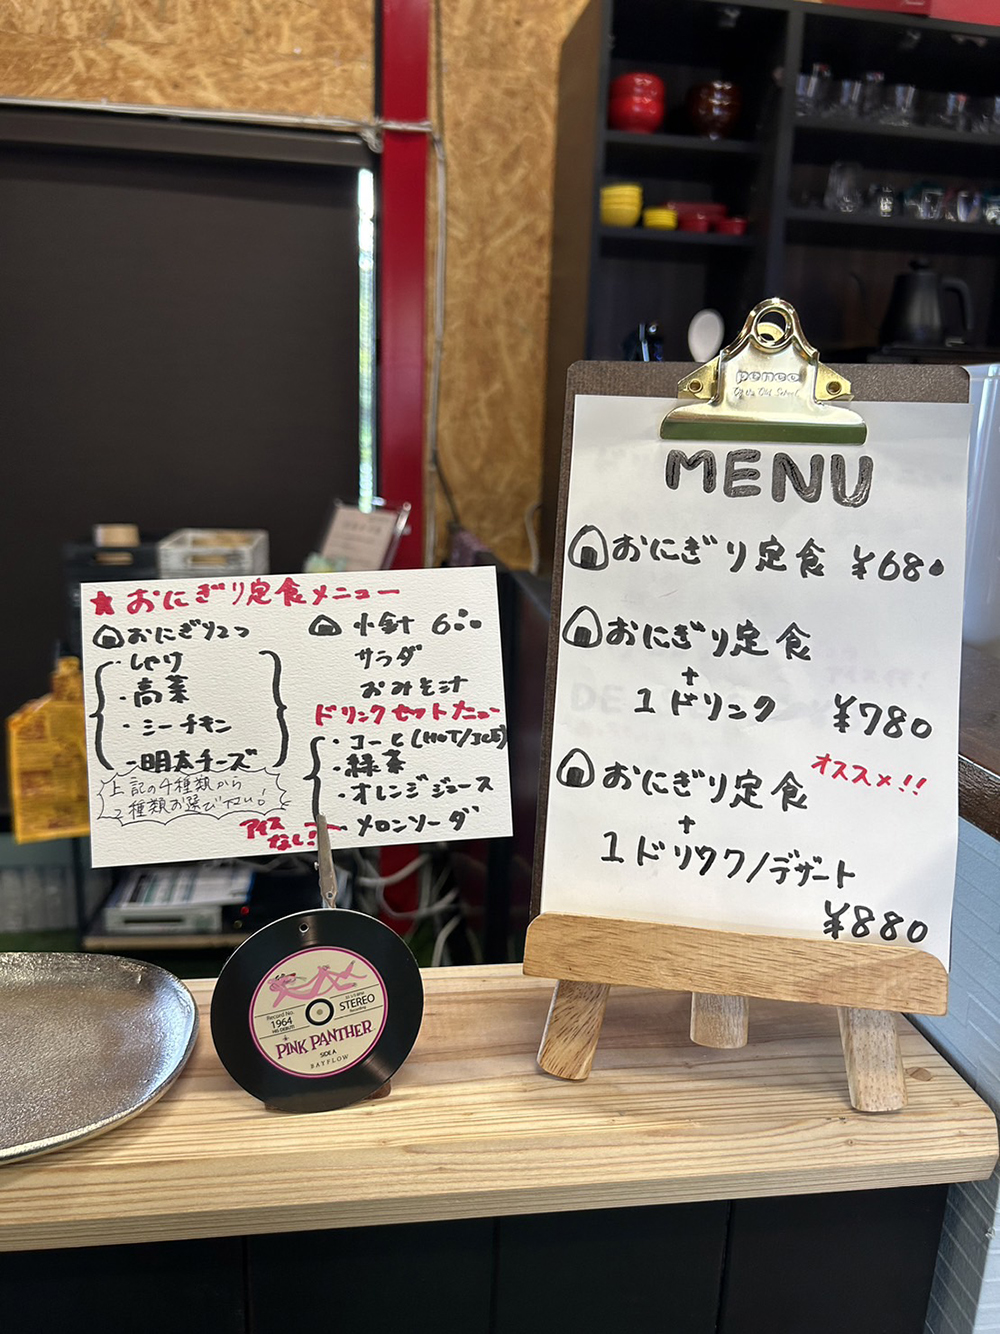 ★おにぎり定食メニュー
おにぎり2つ
・しゃけ
・高菜
・シーチキン
・明太チーズ
上記の4種類から
2種類お選び下さい!
小針
サラダ
おみそ汁
ドリンクセットメニュー
・コーヒ(HOT/ICE)
・緑茶
・オレンジジュース
・メロンソーダ
アイス
なし!
penco
Of the Old School
MENU
おにぎり定食 ¥680
おにぎり定食
+
1ドリンク ¥780
おにぎり定食 オススメ!!
+
1ドリンク/デザート
¥880
Record No.
1964
STEREO
PINK PANTHER
SIDE A
BAYFLOW